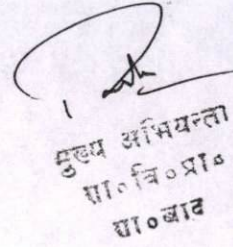 मुख्य अभियन्ता
ग्रा०वि०प्रा०
ग्रा०बाद